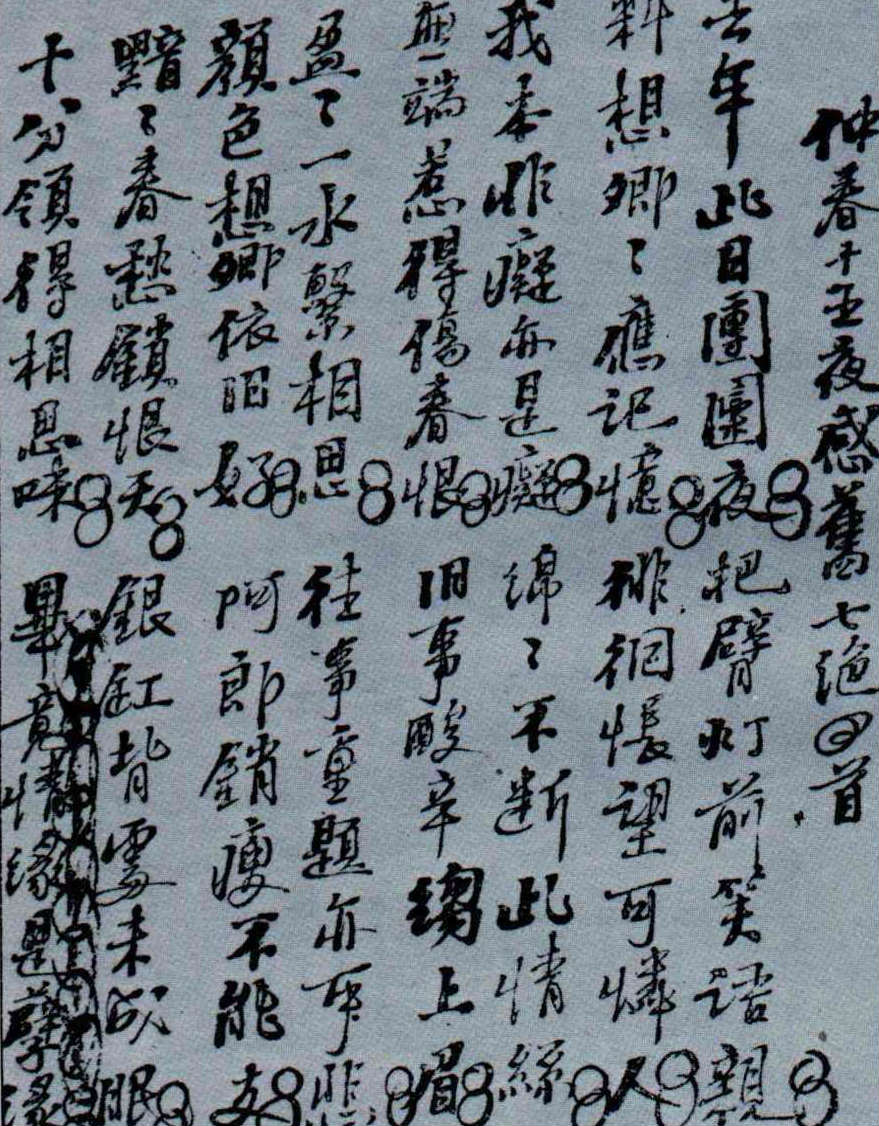 仲春十五夜感舊七绝四首
去年此日團圞夜把臂灯前笑語親
料想卿〻應記憶徘徊悵望可憐人
我本非癡亦是癡綿〻不断此情絲
無端惹得傷春恨旧事酸辛縐上眉
盈〻一水繫相思往事重題亦可悲
顏色想卿依旧好阿郎銷瘦不能支
黯〻春愁鎖恨天銀缸背處未成眠
十分領得相思味畢竟情緣是孽緣